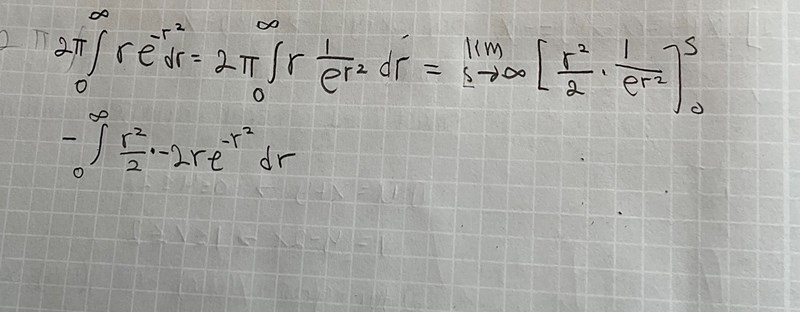 2π∫₀^∞ re^{-r²}dr = 2π∫₀^∞ r 1/e^{r²} dr = lim_{s→∞} [r²/2 · 1/e^{r²}]₀^s
-∫₀^∞ r²/2 · -2re^{-r²} dr